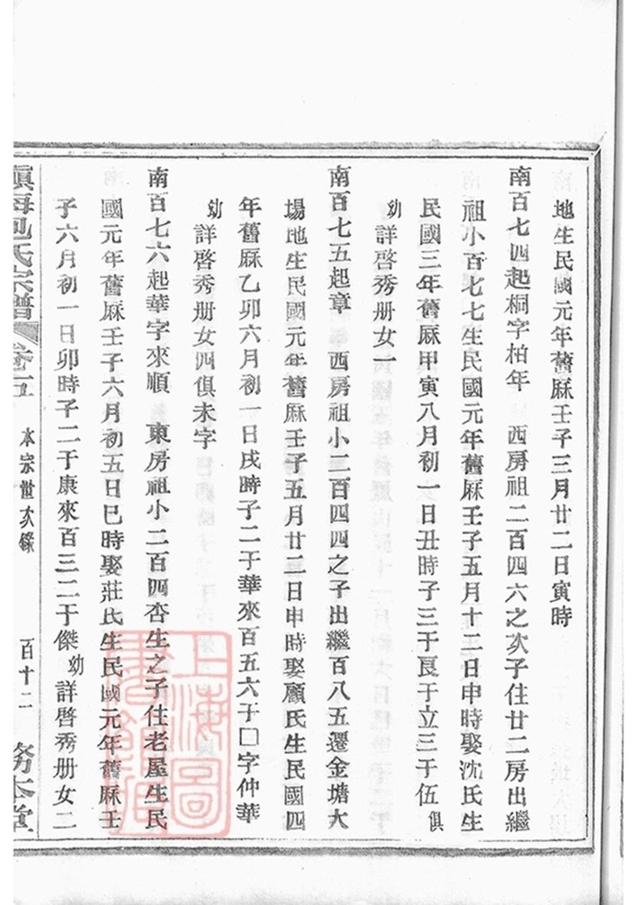 地生民國元年舊厤壬子三月廿二日寅時
南百七四起桐字柏年　西房祖二百四六之次子住廿二房出繼
祖小百七七生民國元年舊厤壬子五月十二日申時娶沈氏生
民國三年舊厤甲寅八月初一日丑時子三于良于立三于伍俱
幼詳啓秀册女一
南百七五起章　西房祖小二百四四之子出繼百八五遷金塘大
場地生民國元年舊厤壬子五月廿二日申時娶顧氏生民國四
年舊厤乙卯六月初一日戌時子二于華來百五六于□字仲華
幼詳啓秀册女四俱未字
南百七六起華字來順　東房祖小二百四杏生之子住老屋生民
國元年舊厤壬子六月初五日巳時娶莊氏生民國元年舊厤壬
子六月初一日卯時子二于康來百三二于傑幼詳啓秀册女二
鎮海包氏宗譜　卷十五　本宗世次錄　百十二　務本堂
上海圖
書館藏